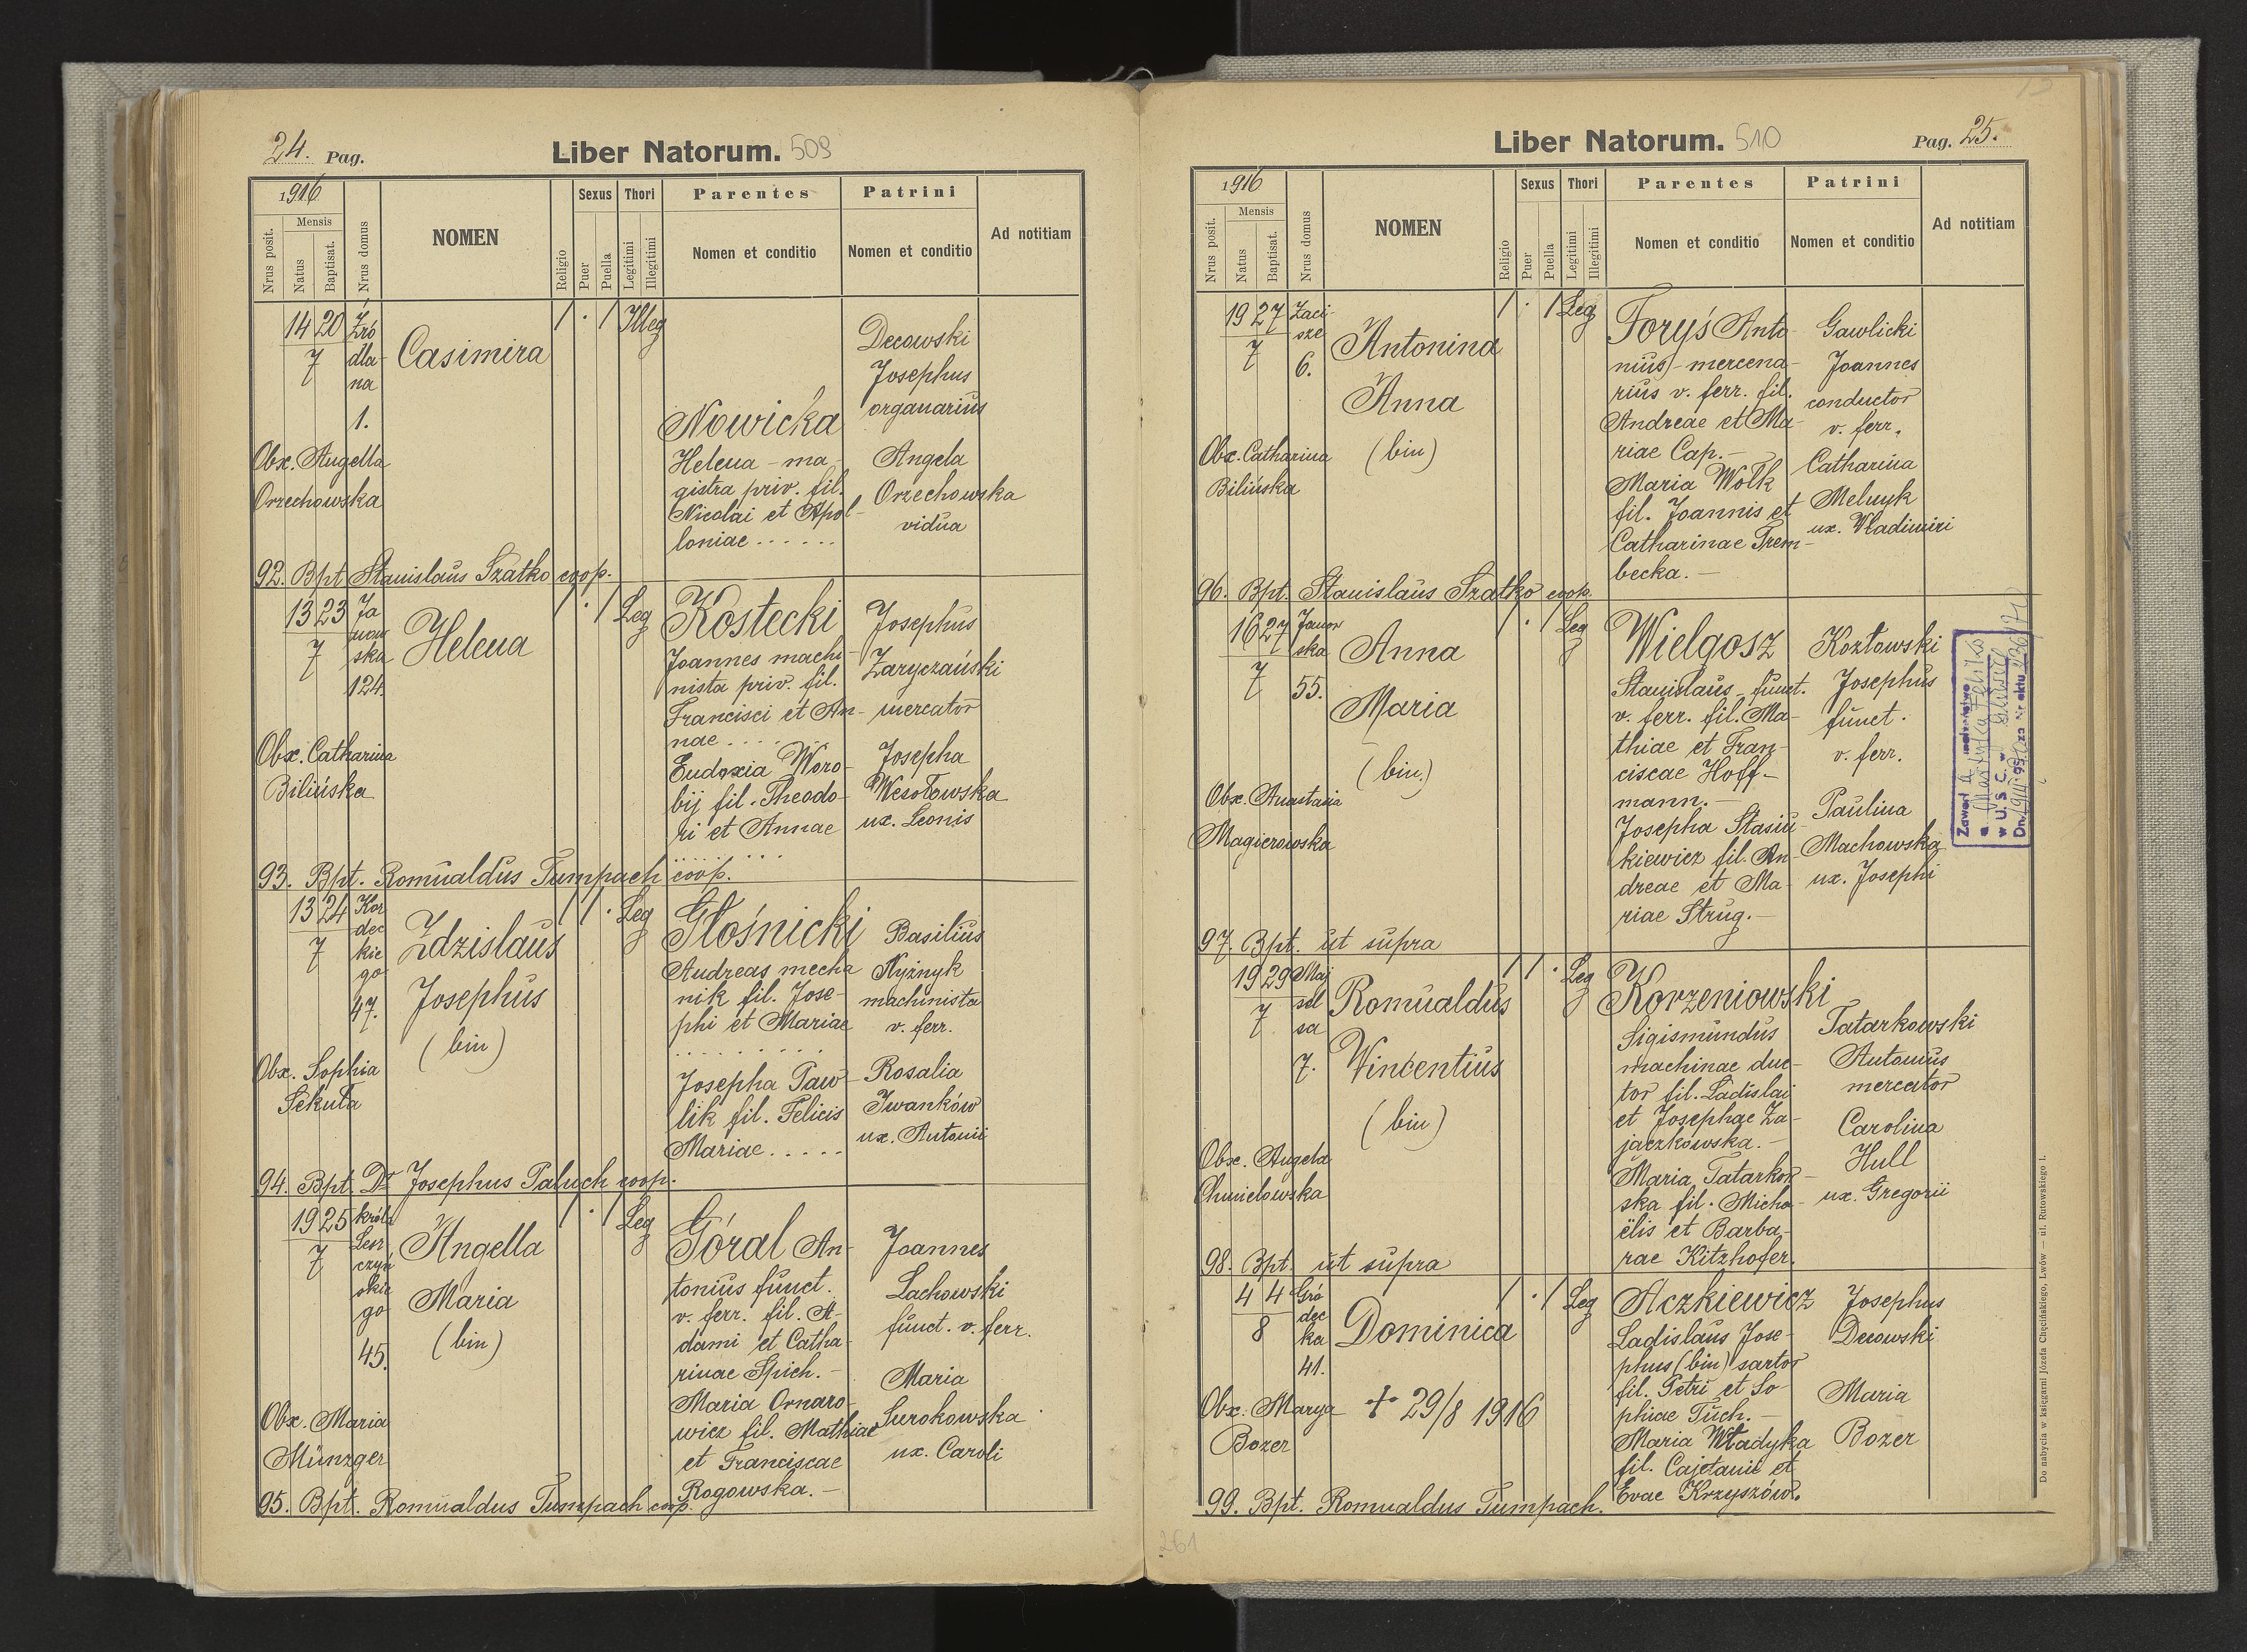 24. Pag.
Liber Natorum. 509
1916
Nrus posit.
Mensis
Natus
Baptisat.
Nrus domus
NOMEN
Religio
Sexus
Puer
Puella
Thori
Legitimi
Illegitimi
Parentes
Nomen et conditio
Patrini
Nomen et conditio
Ad notitiam
14 20
7
Źró
dla-
na
1.
Casimira
1 . 1 Illeg
Nowicka
Helena - ma-
gistra priv. fil.
Nicolai et Apol-
loniae ......
Decowski
Josephus
organarius
Angela
Orzechowska
vidua
Obx. Angella
Orzechowska
92. Bpt. Stanislaus Szatko coop.
13 23
7
Ja
now
ska
124.
Helena
1 . 1 Leg
Kostecki
Joannes machi-
nista priv. fil.
Francisci et An-
nae ......
Eudoxia Woro-
bij fil. Theodo-
ri et Annae
......
Josephus
Zaryczański
mercator
Josepha
Wesołowska
ux. Leonis
Obx. Catharina
Bilińska
93. Bpt. Romualdus Tumpach coop.
13 24
7
Kor
dec
kie
go
47.
Zdzislaus
Josephus
(bin)
1 1 . Leg
Głośnicki
Andreas mecha
nik fil. Jose-
phi et Mariae
.........
Josepha Paw-
lik fil. Felicis
Mariae .....
Basilius
Nyżnyk
machinista
v. ferr.
Rosalia
Iwanków
ux. Antonii
Obx. Sophia
Sekuła
94. Bpt. Dr Josephus Paluch coop.
19 25
7
Królo
Lesz
czyń
skie
go
45.
Angella
Maria
(bin)
1 . 1 Leg
Góral An-
tonius funct.
v. ferr. fil. A-
dami et Catha-
rinae Spich.-
Maria Ornaro-
wicz fil. Mathiae
et Franciscae
Rogowska.-
Joannes
Lachowski
funct. v. ferr.
Maria
Surokowska
ux. Caroli
Obx. Maria
Münzger
95. Bpt. Romualdus Tumpach coop.
Liber Natorum. 510
Pag. 25.
1916
Nrus posit.
Mensis
Natus
Baptisat.
Nrus domus
NOMEN
Religio
Sexus
Puer
Puella
Thori
Legitimi
Illegitimi
Parentes
Nomen et conditio
Patrini
Nomen et conditio
Ad notitiam
19 27
7
Zaci-
sze
6.
Antonina
Anna
(bin)
1 . 1 Leg
Foryś Anto-
nius - mercena-
rius v. ferr. fil.
Andreae et Ma-
riae Cap.-
Maria Wołk
fil. Joannis et
Catharinae Trem-
becka.-
Gawlicki
Joannes
conductor
v. ferr.
Catharina
Melnyk
ux. Wladimiri
Obx. Catharina
Bilińska
96. Bpt. Stanislaus Szatko coop.
16 27
7
Janow
ska
55.
Anna
Maria
(bin.)
1 . 1 Leg
Wielgosz
Stanislaus - funct.
v. ferr. fil. Ma-
thiae et Fran-
ciscae Hoff-
mann.-
Josepha Stasiu-
kiewicz fil. An-
dreae et Ma-
riae Strug.-
Kozłowski
Josephus
funct.
v. ferr.
Paulina
Machowska
ux. Josephi
Zawarł a małżeństwo
w U. S. C. w
Obx. Anastasia
Magierowska
97. Bpt. ut supra
19 29
7
Maj
sel
sa
7.
Romualdus
Vincentius
(bin)
1 1 . Leg
Korzeniowski
Sigismundus
machinae duc-
tor fil. Ladislai
et Josephae Za-
jączkówska.-
Maria Tatarkow-
ska fil. Micha-
ëlis et Barba-
rae Kitzhofer.
Tatarkowski
Antonius
mercator
Carolina
Hull
ux. Gregorii
Obx. Angela
Chmielowska
98. Bpt. ut supra
4 4
8
Gró
dec
ka
41.
Dominica
1 . 1 Leg
Aczkiewicz
Ladislaus Jose-
phus (bin) sartor
fil. Petri et So-
phiae Tuch.-
Maria Władyka
fil. Cajetani et
Evae Krzyszów.
Josephus
Decowski
Maria
Bozer
Obx. Marya
Bozer
+ 29/8 1916
99. Bpt. Romualdus Tumpach.
Do nabycia w księgarni Józefa Chęcińskiego, Lwów — ul. Rutowskiego 1.
261